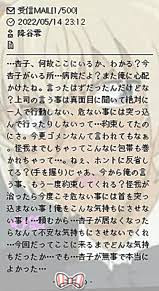 受信MAIL[1/500]
2022/05/14 23:12
降谷零
…杏子、何故ここにいるか、わかる?今
杏子がいる所…病院だよ?また俺に心配
かけたね。言ったはずだったんだけどな
?上司の言う事は真面目に聞いて絶対に
一人で行動しない、危ない事には突っ込
んで行ったりしないって…約束してたの
にさ。今更ゴメンなんて言われてもなぁ
、怪我までしちゃってこんなに包帯も巻
かれちゃって…。ねぇ、ホントに反省し
てる?(手を握り)じゃあ、今から俺の言
う事、もう一度約束してくれる?怪我が
治ったら今度こそ危ない事には首を突っ
込まない事!俺をこんな気持ちにさせな
い事!…頼むから…杏子が居なくなった
らなんて不安な気持ちにさせないでくれ
…今回だってここに来るまでどんな気持
ちだったか…でも…杏子が無事で本当に
よかった…